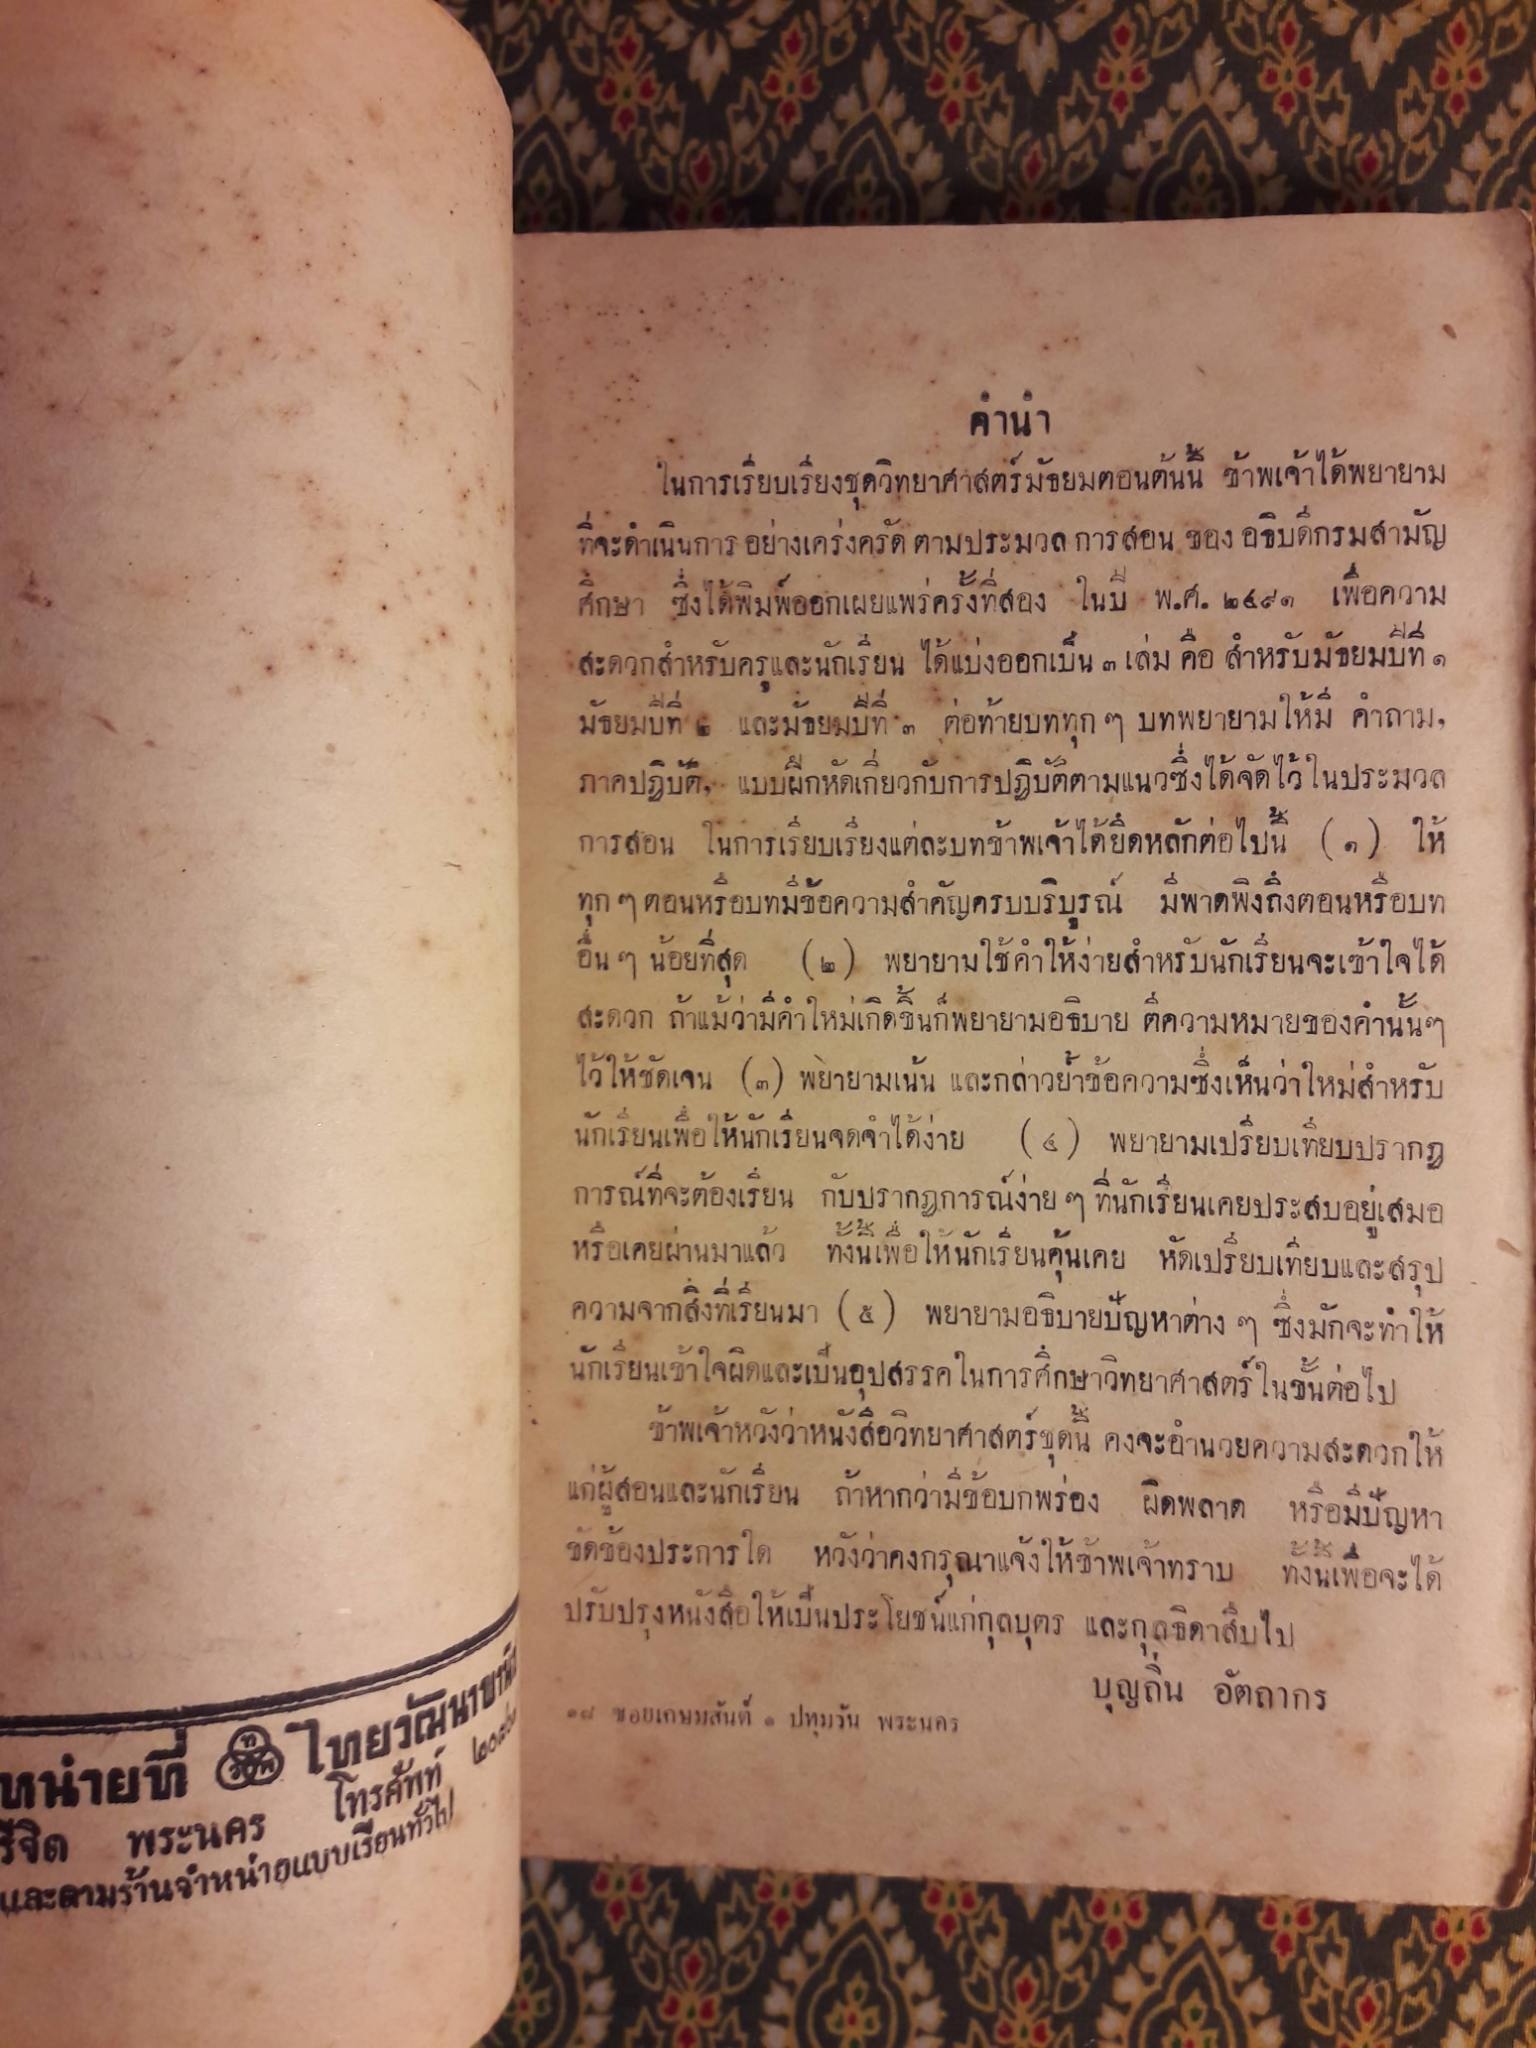 คำนำ
ในการเรียบเรียงชุดวิทยาศาสตร์มัธยมตอนต้นนี้ ข้าพเจ้าได้พยายาม
ที่จะดำเนินการ อย่างเคร่งครัด ตามประมวล การสอน ของ อธิบดีกรมสามัญ
ศึกษา ซึ่งได้พิมพ์ออกเผยแพร่ครั้งที่สอง ในปี พ.ศ. ๒๔๙๑ เพื่อความ
สะดวกสำหรับครูและนักเรียน ได้แบ่งออกเป็น ๓ เล่ม คือ สำหรับมัธยมปีที่ ๑
มัธยมปีที่ ๒ และมัธยมปีที่ ๓ ต่อท้ายบททุก ๆ บทพยายามให้มี คำถาม,
ภาคปฏิบัติ, แบบฝึกหัดเกี่ยวกับการปฏิบัติตามแนวซึ่งได้จัดไว้ในประมวล
การสอน ในการเรียบเรียงแต่ละบทข้าพเจ้าได้ยึดหลักต่อไปนี้ (๑) ให้
ทุก ๆ ตอนหรือบทมีข้อความสำคัญครบบริบูรณ์ มีพาดพิงถึงตอนหรือบท
อื่น ๆ น้อยที่สุด (๒) พยายามใช้คำให้ง่ายสำหรับนักเรียนจะเข้าใจได้
สะดวก ถ้าแม้ว่ามีคำใหม่เกิดขึ้นก็พยายามอธิบาย ตีความหมายของคำนั้นๆ
ไว้ให้ชัดเจน (๓) พยายามเน้น และกล่าวย้ำข้อความซึ่งเห็นว่าใหม่สำหรับ
นักเรียนเพื่อให้นักเรียนจดจำได้ง่าย (๔) พยายามเปรียบเทียบปรากฏ
การณ์ที่จะต้องเรียน กับปรากฏการณ์ง่าย ๆ ที่นักเรียนเคยประสบอยู่เสมอ
หรือเคยผ่านมาแล้ว ทั้งนี้เพื่อให้นักเรียนคุ้นเคย หัดเปรียบเทียบและสรุป
ความจากสิ่งที่เรียนมา (๕) พยายามอธิบายปัญหาต่าง ๆ ซึ่งมักจะทำให้
นักเรียนเข้าใจผิดและเป็นอุปสรรคในการศึกษาวิทยาศาสตร์ในขั้นต่อไป
ข้าพเจ้าหวังว่าหนังสือวิทยาศาสตร์ชุดนี้ คงจะอำนวยความสะดวกให้
แก่ผู้สอนและนักเรียน ถ้าหากว่ามีข้อบกพร่อง ผิดพลาด หรือมีปัญหา
ขัดข้องประการใด หวังว่าคงกรุณาแจ้งให้ข้าพเจ้าทราบ ทั้งนี้เพื่อจะได้
ปรับปรุงหนังสือให้เป็นประโยชน์แก่กุลบุตร และกุลธิดาสืบไป
บุญถิ่น อัตถากร
๑๘ ซอยเกษมสันต์ ๑ ปทุมวัน พระนคร
หน่ายที่ ไทยวัฒนาพานิ
พระนคร โทรศัพท์
และตามร้านจำหน่ายแบบเรียนทั่วไป